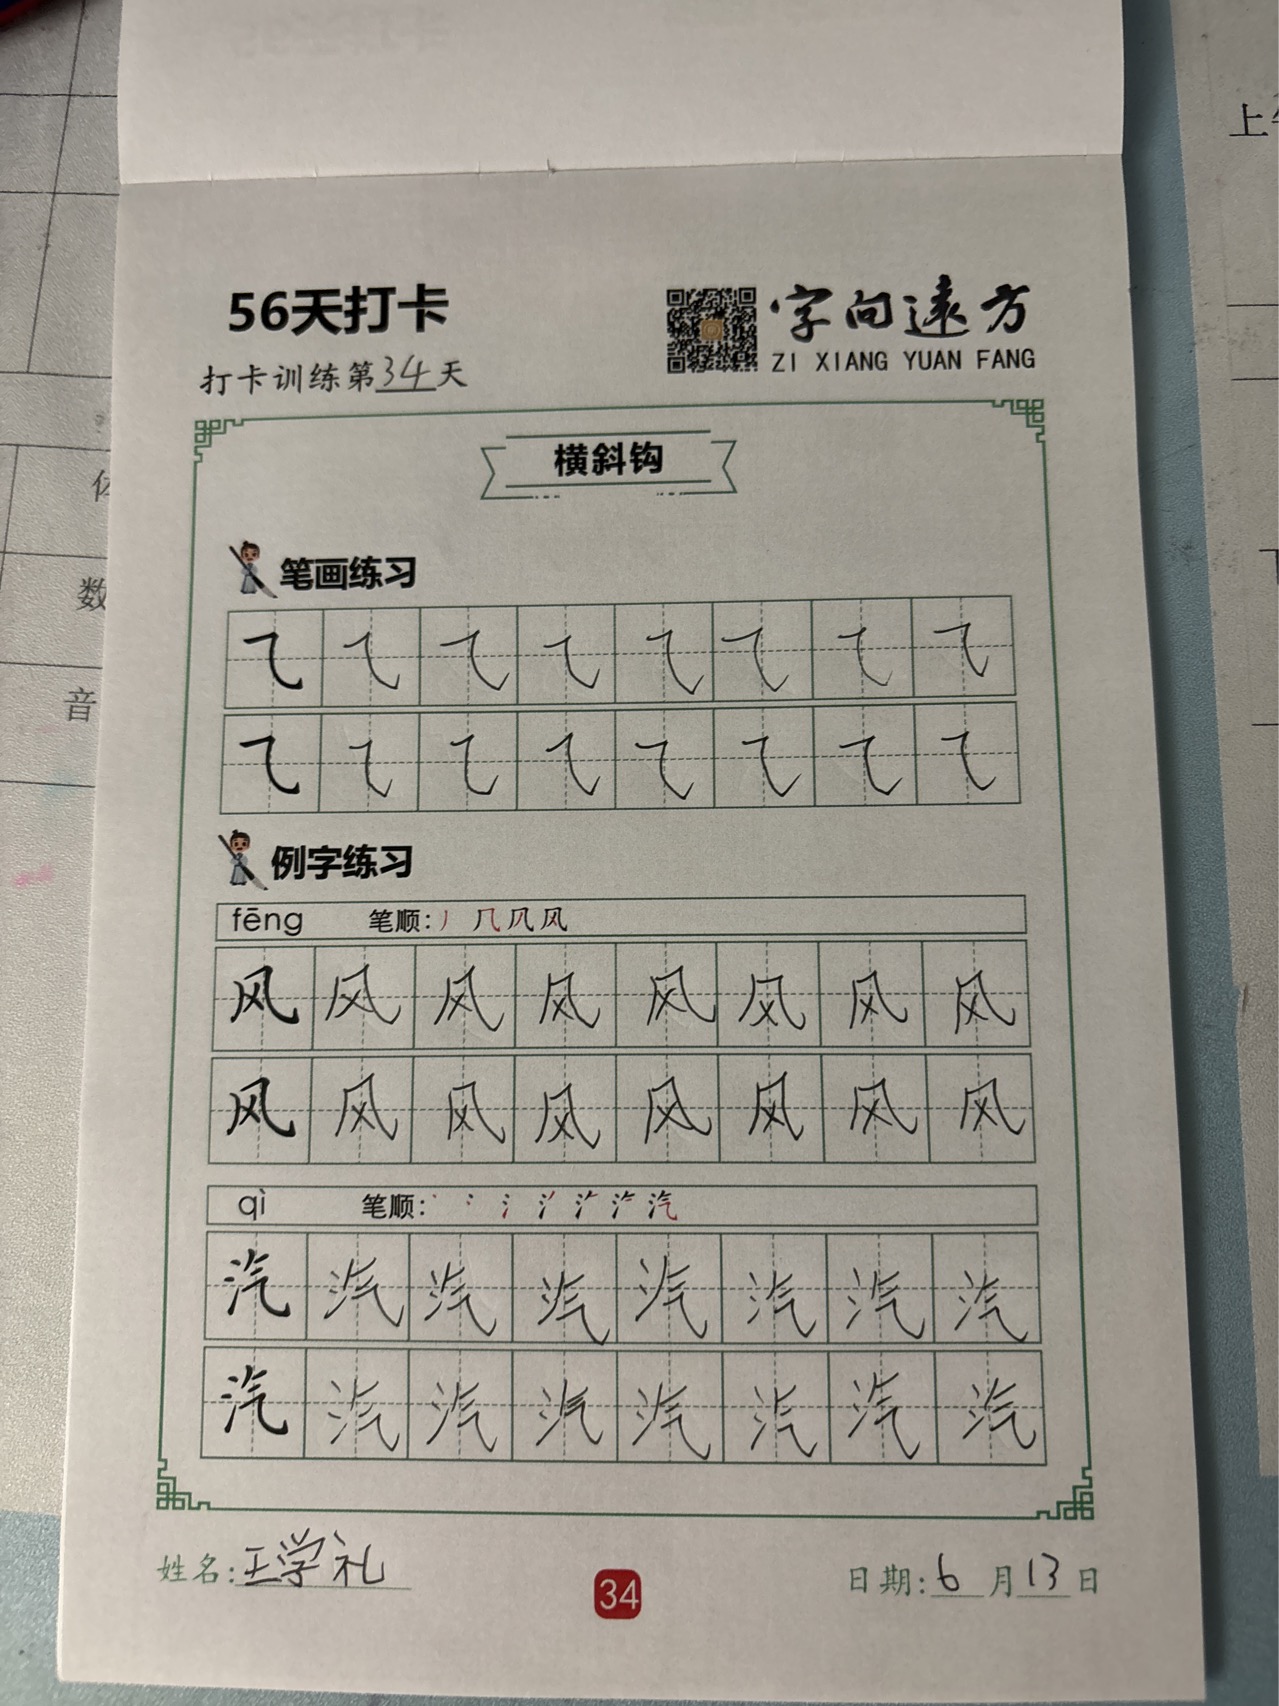 56天打卡
字向遠方
ZI XIANG YUAN FANG
打卡训练第34天
横斜钩
笔画练习
㇈ ㇈ ㇈ ㇈ ㇈ ㇈ ㇈ ㇈
㇈ ㇈ ㇈ ㇈ ㇈ ㇈ ㇈ ㇈
例字练习
fēng 笔顺: 丿 几 凤 风
风 风 风 风 风 风 风 风
风 风 风 风 风 风 风 风
qì 笔顺: 汽
汽 汽 汽 汽 汽 汽 汽 汽
汽 汽 汽 汽 汽 汽 汽 汽
姓名:王学礼
34
日期:6月13日
上
体
数
音